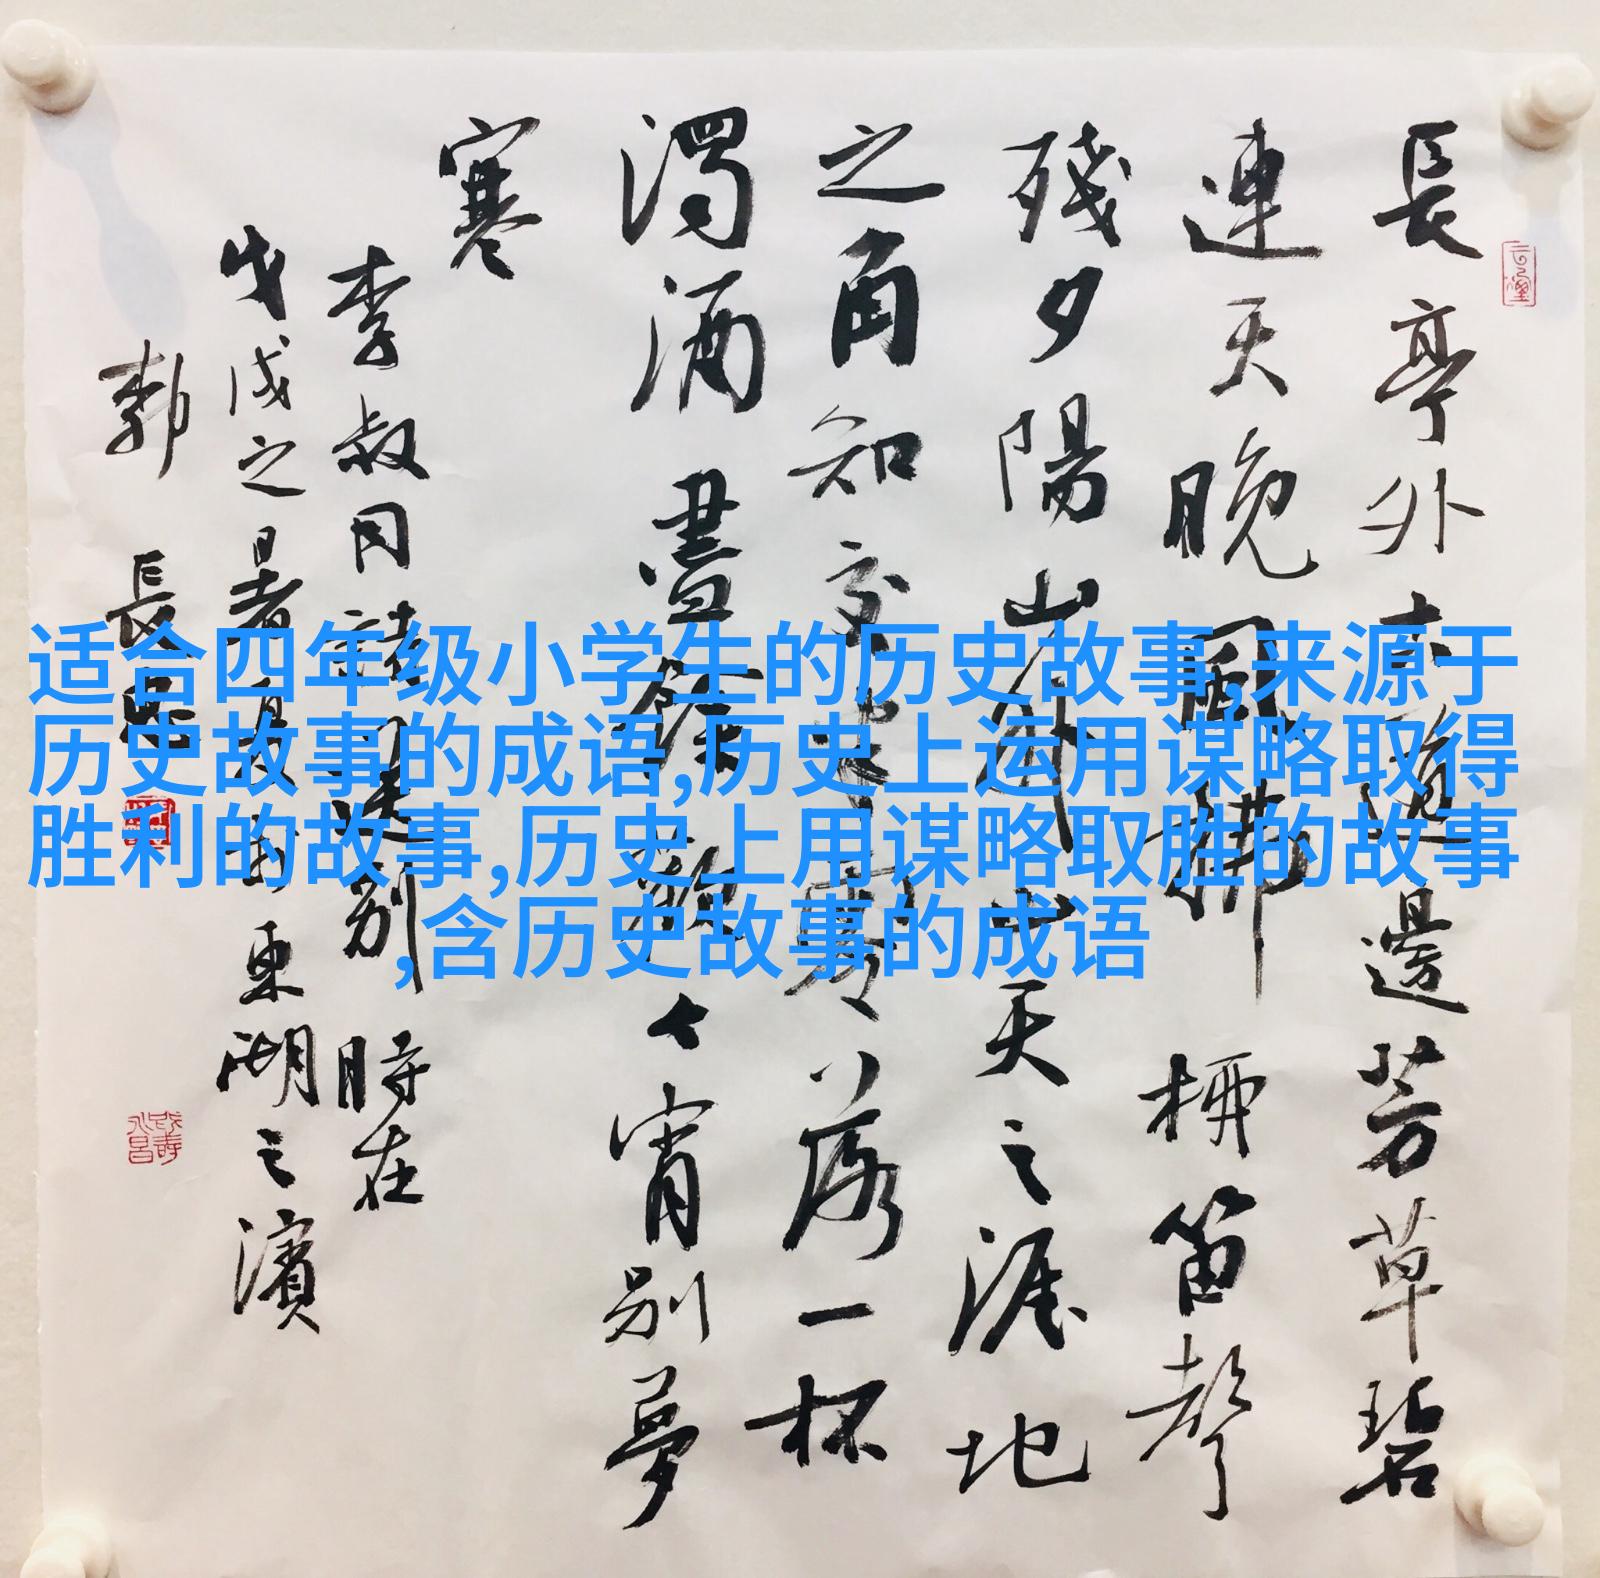 長亭外古道邊芳草碧
連天晚風拂柳笛聲
殘夕陽山外山天之涯地
之角知交半零落一杯
濁酒盡餘歡今宵別夢
寒
李叔同詩送別 時在
戊戌之暑東湖之濱
郭長
适合四年级小学生的历史故事,来源于
历史故事的成语,历史上运用谋略取得
胜利的故事,历史上用谋略取胜的故事
,含历史故事的成语